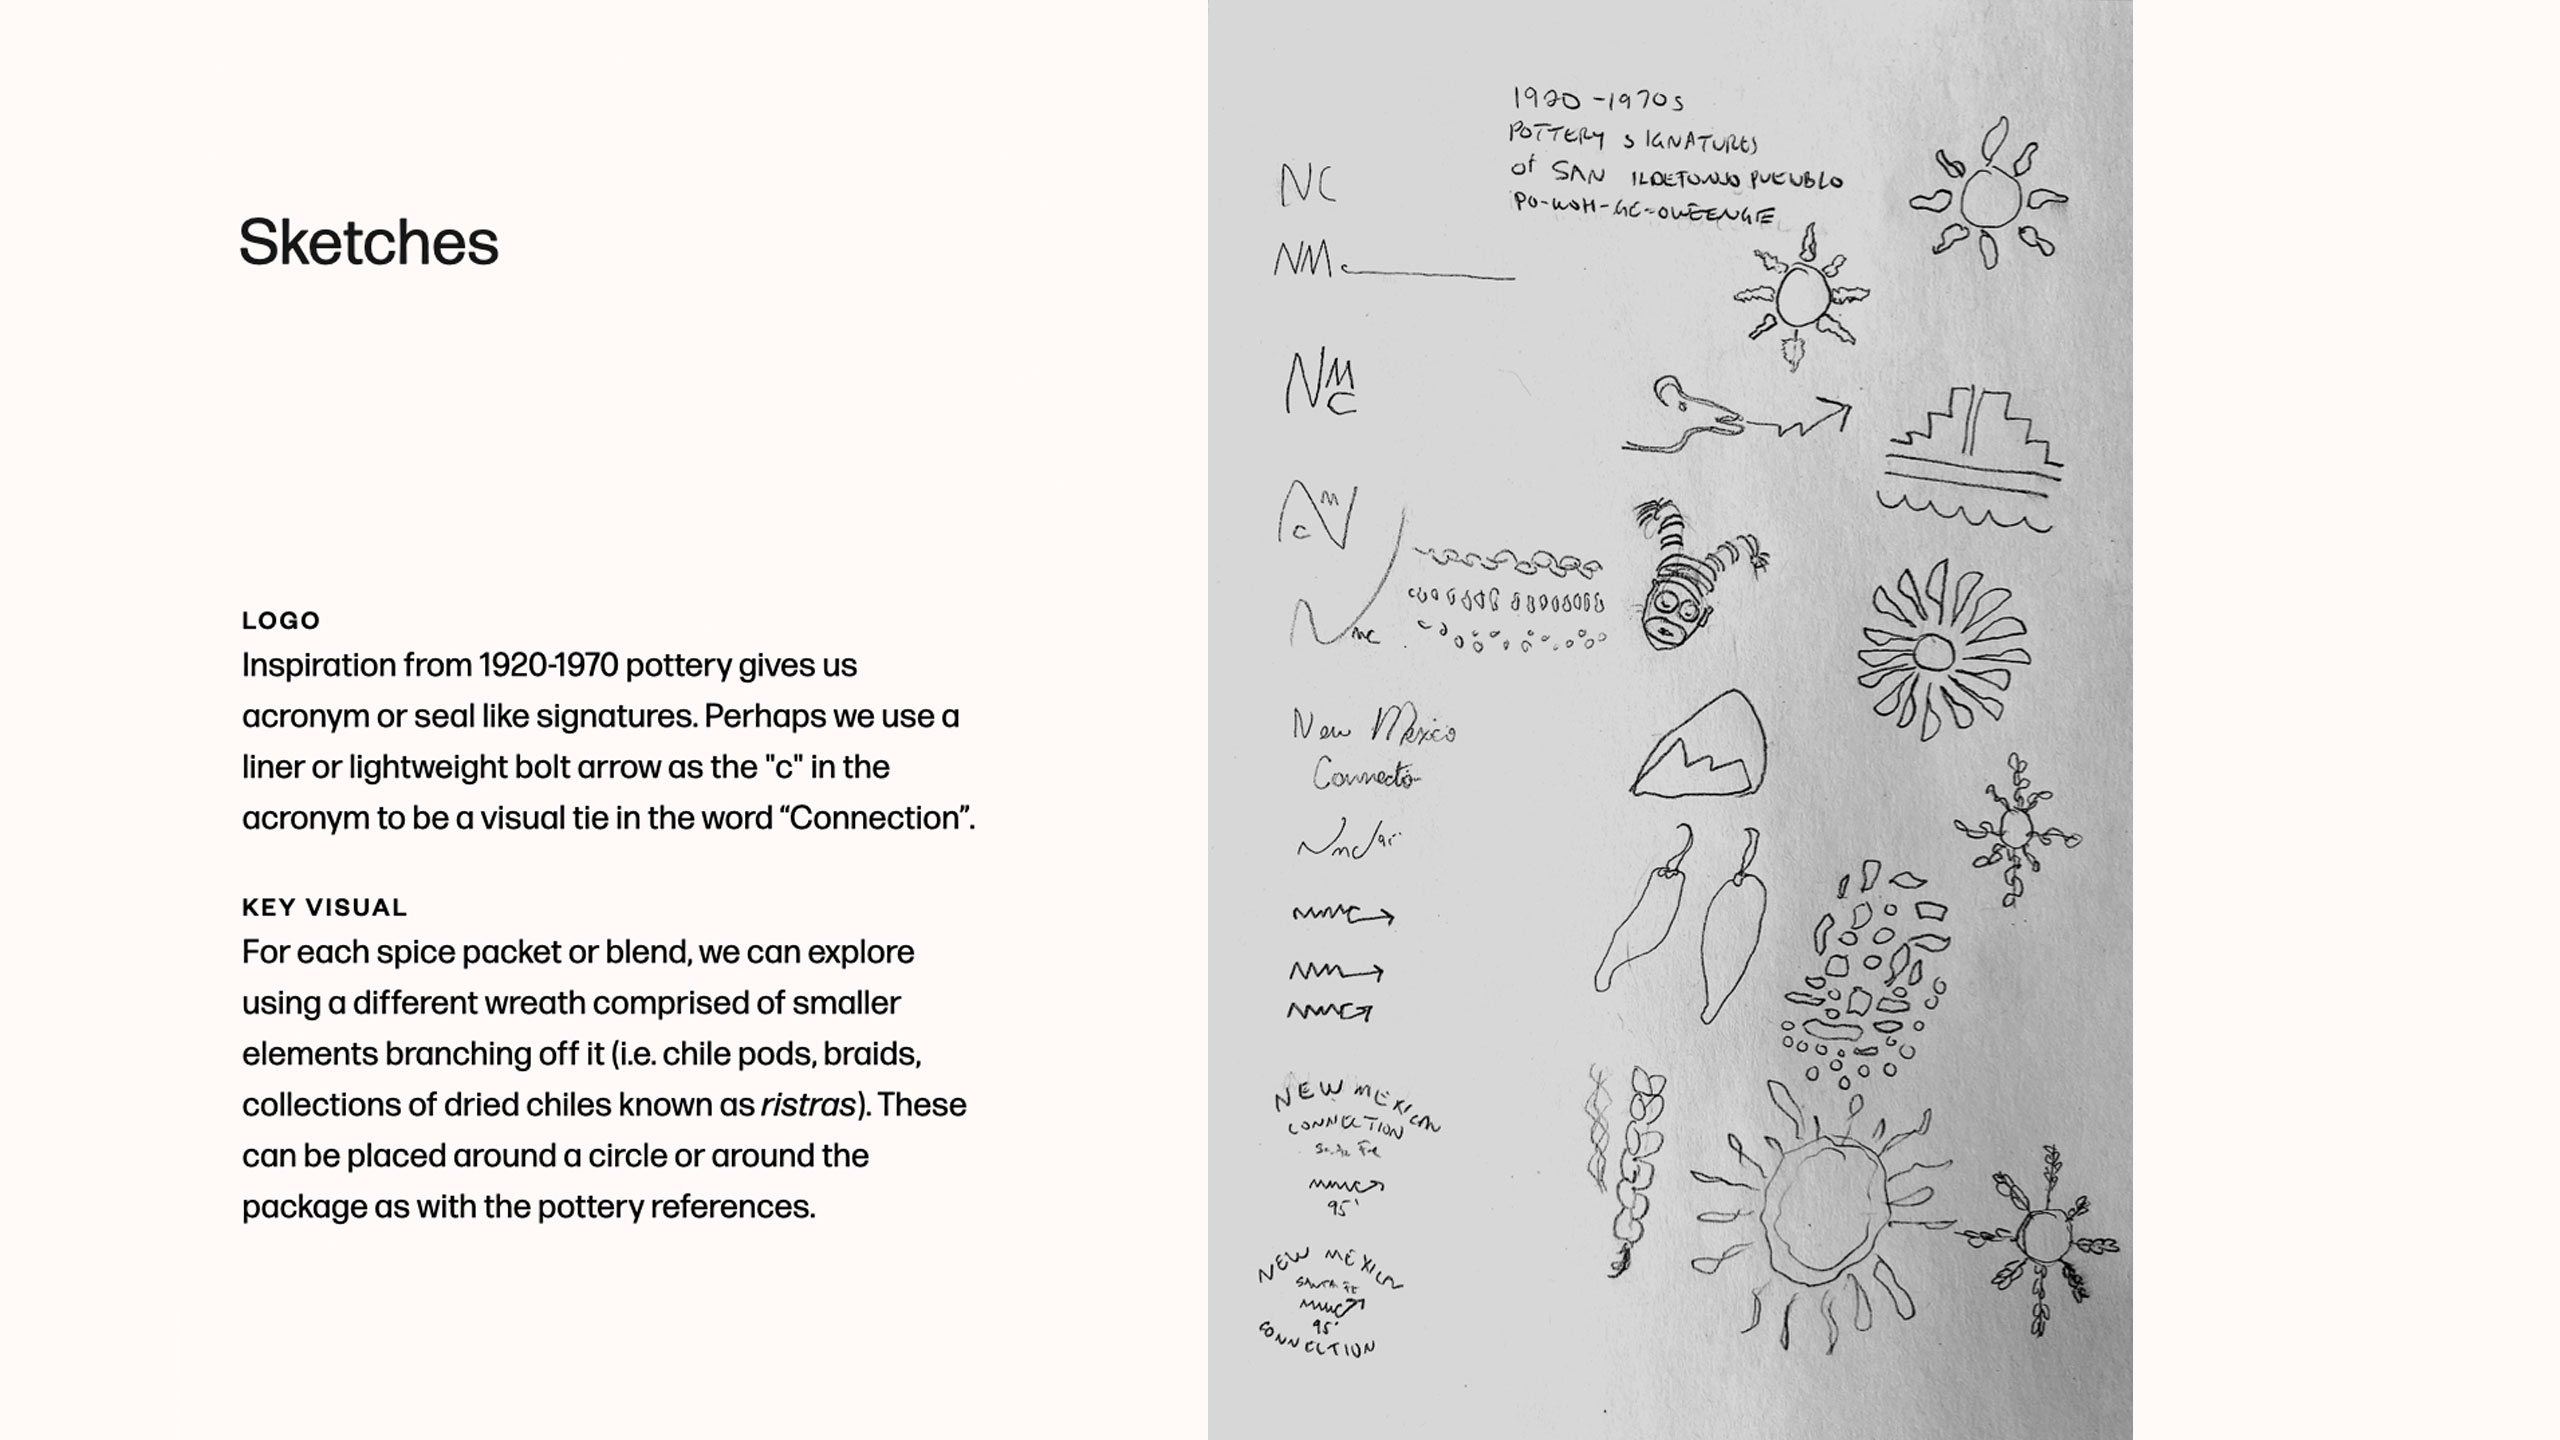 Sketches
LOGO
Inspiration from 1920-1970 pottery gives us
acronym or seal like signatures. Perhaps we use a
liner or lightweight bolt arrow as the "c" in the
acronym to be a visual tie in the word “Connection”.
KEY VISUAL
For each spice packet or blend, we can explore
using a different wreath comprised of smaller
elements branching off it (i.e. chile pods, braids,
collections of dried chiles known as ristras). These
can be placed around a circle or around the
package as with the pottery references.
1920-1970s
POTTERY SIGNATURES
of SAN ILDEFONSO PUEUBLO
NC
NMc
NMC
NMC
Nmc
New Mexico
Connectio
NMC
NM
NMC
NEW MEXICAN
CONNECTION
Santa Fe
NMC
95'
NEW MEXICAN
SANTA FE
NMC
95'
CONNECTION